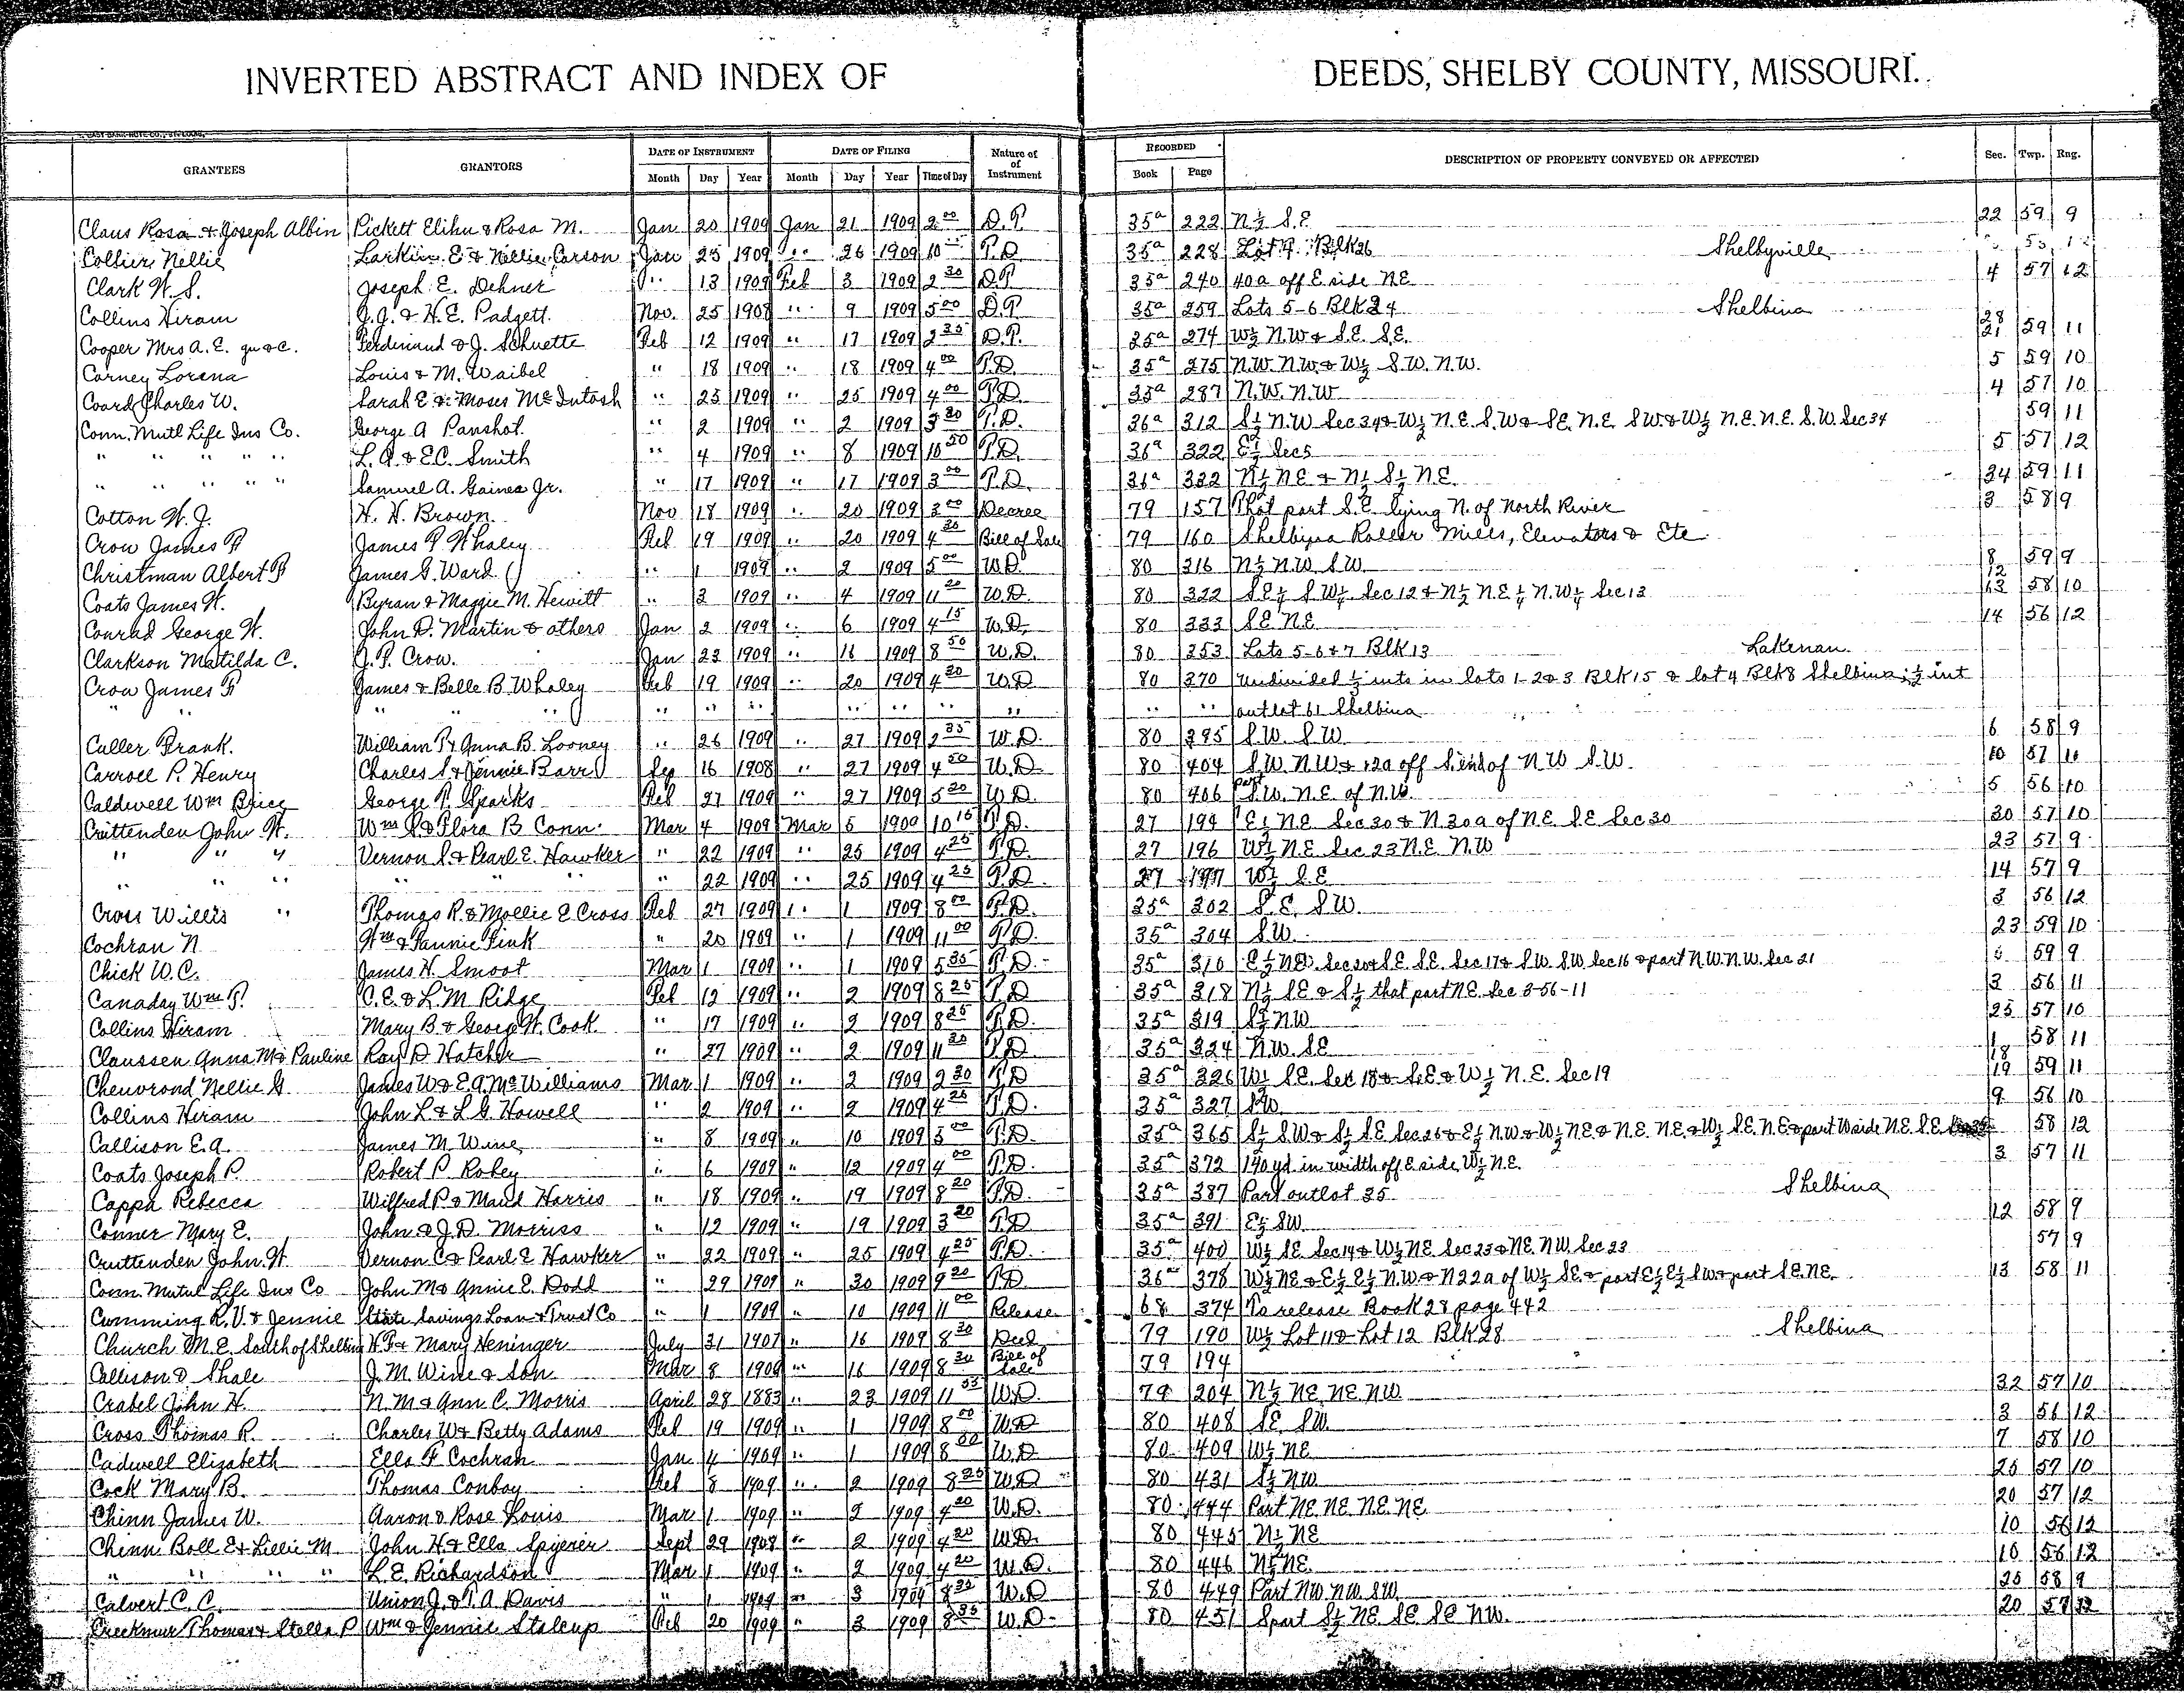 INVERTED ABSTRACT AND INDEX OF DEEDS, SHELBY COUNTY, MISSOURI.
GRANTEES GRANTORS DATE OF INSTRUMENT DATE OF FILING Nature of of Instrument RECORDED DESCRIPTION OF PROPERTY CONVEYED OR AFFECTED Sec. Twp. Rng.
Month Day Year Month Day Year Time of Day Book Page
Claus Rosa & Joseph Albin Pickett Elihu & Rosa M. Jan 20 1909 Jan 21 1909 2 00 D.T. 35a 222 N½ S.E 22 59 9
Collier Nellie Larkin E & Nellie Carson Jan 25 1909 " 26 1909 10 T.D 35a 228 Blk 26 Shelbyville
Clark W. S. Joseph E. Dehner " 13 1909 Feb 3 1909 2 30 D.T 35a 240 40a off E side NE 4 57 12
Collins Hiram J.J. & H.E. Padgett. Nov. 25 1908 " 9 1909 5 00 D.T 35a 259 Lots 5-6 Blk 24 Shelbina
Cooper Mrs A. E. Ferdinand & J. Schuette Feb 12 1909 " 17 1909 2 35 D.T. 35a 274 W½ N.W & S.E. S.E. 28 21 59 11
Corney Lorena Louis & M. Waibel " 18 1909 " 18 1909 4 00 T.D. 35a 275 N.W. N.W. & W½ S.W. N.W. 5 59 10
Coard Charles W. Sarah E & Moses McIntosh " 25 1909 " 25 1909 4 00 T.D. 35a 287 N.W. N.W 4 57 10
Conn. Mutl Life Ins Co. George A Panshot. " 2 1909 " 2 1909 3 30 T.D. 36a 312 S½ N.W Sec 34 & W½ N.E. S.W & S.E. N.E. S.W. & W½ N.E. N.E. S.W. Sec 34 59 11
" " " " " L. A. & E.C. Smith " 4 1909 " 8 1909 10 50 T.D. 36a 322 E½ Sec 5 5 57 12
" " " " " Samuel A. Gaines Jr. " 17 1909 " 17 1909 3 00 T.D. 36a 332 N½ NE & N½ S½ N.E. 34 59 11
Cotton W. J. H. H. Brown. Nov 18 1909 " 20 1909 3 00 Decree 79 157 That part S.E. lying N. of North River 3 58 9
Crow James F James T Whaley Feb 19 1909 " 20 1909 4 20 Bill of Sale 79 160 Shelbina Roller Mills, Elevators & Etc
Christman Albert F James G. Ward " 1 1909 " 2 1909 5 00 W.D. 80 316 N½ N.W. S.W. 8 59 9
Coats James W. Byran & Maggie M. Hewitt " 3 1909 " 4 1909 11 20 W.D. 80 322 S.E¼ S.W¼ Sec 12 & N½ N.E¼ N.W¼ Sec 13 12 13 58 10
Conrad George W. John D. Martin & others Jan 2 1909 " 6 1909 4 15 W.D. 80 333 S.E. N.E. 14 56 12
Clarkson Matilda C. J. P. Crow. Jan 23 1909 " 16 1909 8 50 W.D. 80 353 Lots 5-6 & 7 Blk 13 Lakenan.
Crow James F James & Belle B Whaley Feb 19 1909 " 20 1909 4 20 W.D 80 370 Undivided ½ ints in lots 1-2 & 3 Blk 15 & lot 4 Blk 8 Shelbina; ½ int
" " " " " " " " " " " " " " outlot 61 Shelbina
Culler Frank. William T & Anna B. Looney " 26 1909 " 27 1909 2 35 W.D. 80 395 S.W. S.W. 6 58 9
Carroll P. Henry Charles S & Jennie Barr Sep 16 1908 " 27 1909 4 50 W.D. 80 404 S.W. N.W & 12a off S. end of N.W S.W. 10 57 11
Caldwell Wm Brice George P. Sparks Feb 27 1909 " 27 1909 5 20 W.D. 80 406 part S.W. N.E. of N.W. 5 56 10
Crittenden John W. Wm S & Flora B Conn. Mar 4 1909 Mar 5 1909 10 15 T.D. 27 194 E½ N.E Sec 30 & N. 30a of N.E. S.E. Sec 30 30 57 10
" " " Vernon S & Pearl E. Hawker " 22 1909 " 25 1909 4 25 T.D. 27 196 W½ N.E. Sec 23 N.E. N.W 23 57 9
" " " " " " " 22 1909 " 25 1909 4 25 T.D. 27 197 W½ S.E 14 57 9
Cross Willis " Thomas R. & Mollie E Cross Feb 27 1909 " 1 1909 8 00 T.D. 35a 302 S.E. S.W. 3 56 12
Cochran N Wm & Fannie Fink " 20 1909 " 1 1909 11 00 T.D. 35a 304 S.W. 23 59 10
Chick W.C. James H. Smoot Mar 1 1909 " 1 1909 5 35 T.D. 35a 310 E½ NE. Sec 20 & S.E. S.E. Sec 17 & S.W. S.W Sec 16 & part N.W. N.W. Sec 21 59 9
Canaday Wm T. C. E. & L. M Ridge Feb 12 1909 " 2 1909 8 25 T.D 35a 318 N½ SE & S½ that part NE. Sec 3-56-11 3 56 11
Collins Hiram Mary B. & George W. Cook " 17 1909 " 2 1909 8 25 T.D. 35a 319 S½ NW 25 57 10
Claussen Anna M & Pauline Ray D Hatcher " 27 1909 " 2 1909 11 20 T.D. 35a 324 N.W. S.E 1 58 11
Chenvrond Nellie G James W & E.A. McWilliams Mar 1 1909 " 2 1909 2 30 T.D 35a 326 W½ SE. Sec 18 & S.E & W½ N.E. Sec 19 18 19 59 11
Collins Hiram John L & L. G. Howell " 2 1909 " 2 1909 4 25 T.D. 35a 327 S.W. 9 56 10
Callison E.A. James M. Wine " 8 1909 " 10 1909 3 00 T.D. 35a 365 S½ SW & S½ SE Sec 26 & E½ N.W & W½ NE & N.E. NE. & W½ S.E. N.E & part W side N.E. S.E. 58 12
Coats Joseph P. Robert P. Robey " 6 1909 " 12 1909 4 00 T.D. 35a 372 140 yd in width off E side W½ N.E. 3 57 11
Cappa Rebecca Wilfred P & Maud Harris " 18 1909 " 19 1909 8 20 T.D. 35a 387 Part outlot 35 Shelbina
Conner Mary E. John & J.D. Morriss " 12 1909 " 19 1909 3 20 T.D 35a 391 E½ SW 12 58 9
Cruttenden John W. Vernon C & Pearl E Hawker " 22 1909 " 25 1909 4 25 T.D. 35a 400 W½ SE. Sec 14 & W½ NE. Sec 23 & NE. NW. Sec 23 57 9
Conn. Mutul Life Ins Co John M & Annie E. Dodd " 29 1909 " 30 1909 9 20 T.D 36a 378 W½ NE & E½ E½ N.W & N 22a of W½ SE & part E½ E½ SW & part S.E. NE. 13 58 11
Cumming R.V. & Jennie State Savings Loan & Trust Co " 1 1909 " 10 1909 11 00 Release 68 374 To release Book 28 page 442
Church M. E. South of Shelbina H.F & Mary Heninger July 31 1907 " 16 1909 8 30 Deed 79 190 W½ Lot 11 & Lot 12 Blk 28 Shelbina
Callison & Shale J. M. Wine & Son Mar 8 1909 " 16 1909 8 30 Bill of Sale 79 194
Crabel John H. N. M & Ann C. Morris April 28 1883 " 23 1909 11 55 W.D. 79 204 N½ NE. NE. NW 32 57 10
Cross Thomas R. Charles W & Betty Adams Feb 19 1909 " 1 1909 8 00 W.D 80 408 SE. SW. 3 56 12
Cadwell Elizabeth Ella F Cochran Jan 4 1909 " 1 1909 8 00 W.D 80 409 W½ NE 7 58 10
Cock Mary B. Thomas Conboy Feb 8 1909 " 2 1909 8 25 W.D 80 431 S½ NW 25 57 10
Chinn James W. Aaron & Rose Louis Mar 1 1909 " 2 1909 4 20 W.D. 80 444 Part NE. NE. NE. NE. 20 57 12
Chinn Boll E & Lillie M John H & Ella Spyerer Sept 29 1908 " 2 1909 4 20 W.D. 80 445 N½ NE 10 56 12
" " " " L. E. Richardson Mar 1 1909 " 2 1909 4 20 W.D. 80 446 N½ NE. 10 56 12
Calvert C. C. Union J. & T. A. Davis " 1 1909 " 3 1909 8 30 W.D 80 449 Part NW. NW. SW. 25 58 9
Creekmur Thomas & Stella P Wm & Jennie Stalcup Feb 20 1909 " 3 1909 8 35 W.D 80 451 S part S½ NE. SE. SE. NW. 20 57 12